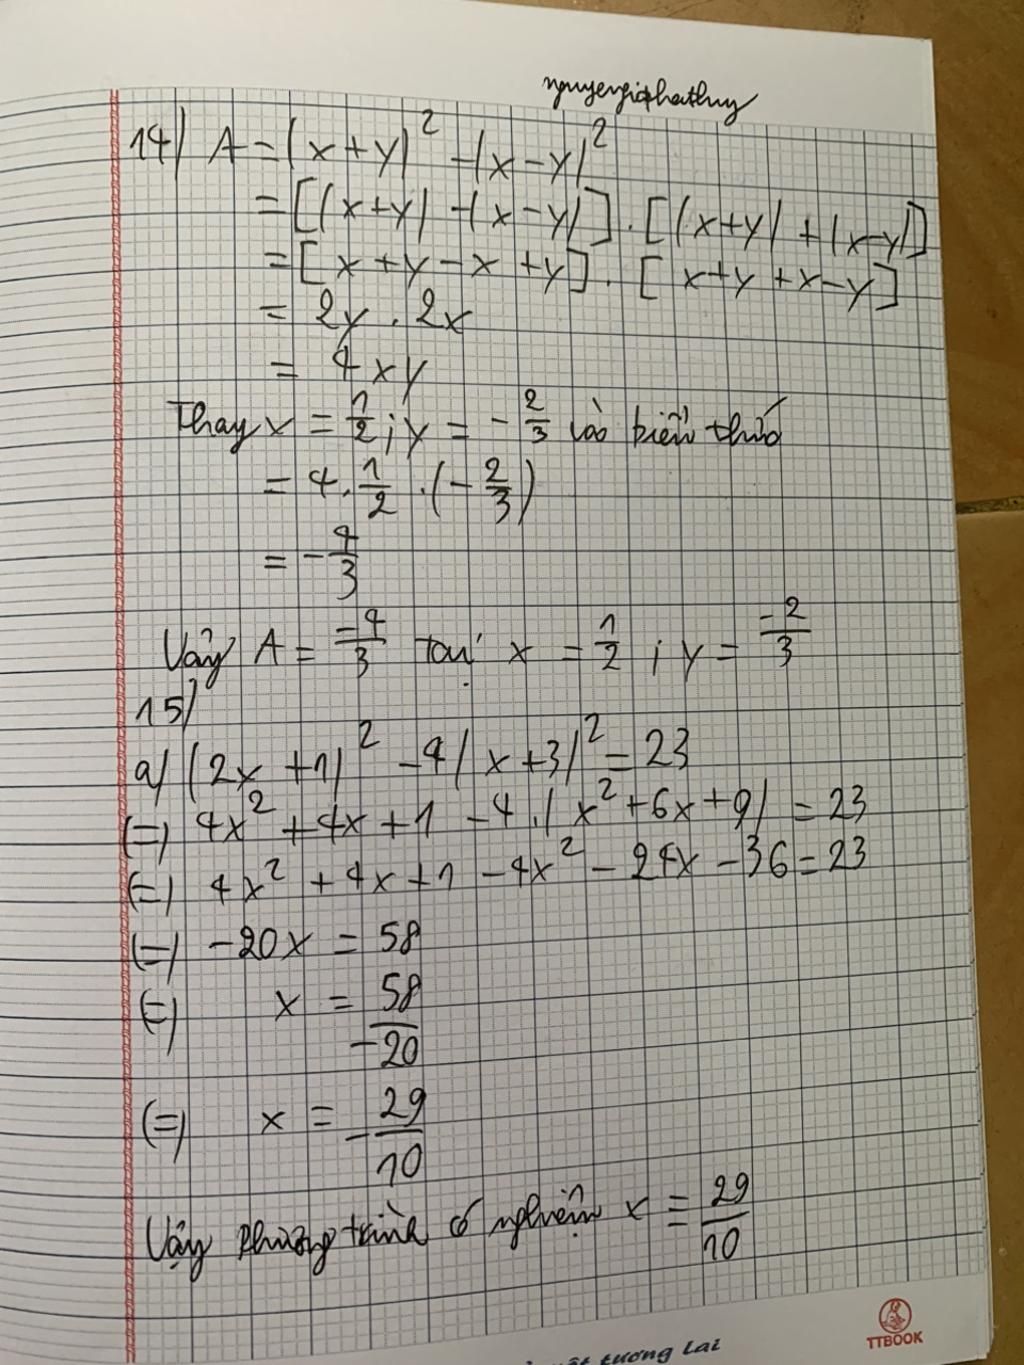 nguyengiaphathuy
14) A = (x + y)² - (x - y)²
= [(x + y) - (x - y)] . [(x + y) + (x - y)]
= [x + y - x + y] . [x + y + x - y]
= 2y . 2x
= 4xy
Thay x = 1/2 ; y = - 2/3 vào biểu thức
= 4 . 1/2 . (- 2/3)
= - 4/3
Vậy A = -4/3 tại x = 1/2 ; y = -2/3
15)
a) (2x + 1)² - 4(x + 3)² = 23
(=) 4x² + 4x + 1 - 4 . (x² + 6x + 9) = 23
(=) 4x² + 4x + 1 - 4x² - 24x - 36 = 23
(=) -20x = 58
(=) x = 58/-20
(=) x = - 29/10
Vậy phương trình có nghiệm x = 29/10
tương lai
TTBOOK